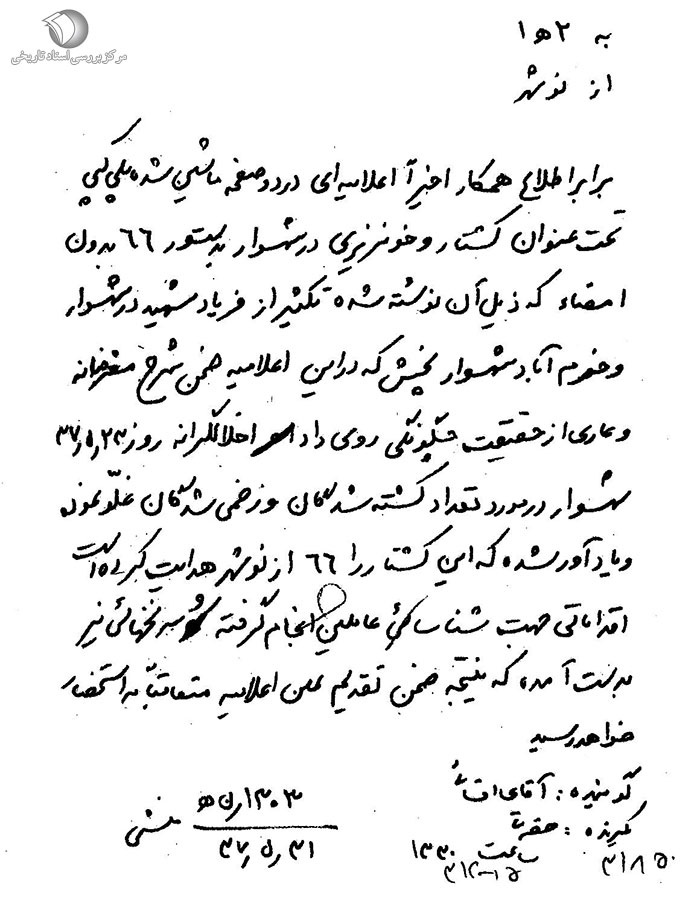 مرکز بررسی اسناد تاریخی
به ۲ ه ۱
از نوشهر
برابر اطلاع همکار اخیراً اعلامیه‌ای در دو صفحه ماشین شده پلی کپی
تحت عنوان کشتار و خونریزی در شهسوار بدستور ۶۶ بدون
امضاء که ذیل آن نوشته شده تکثیر از فریاد شهید در شهسوار
و خرم آباد شهسوار پخش که در این اعلامیه ضمن شرح مغرضانه
و عاری از حقیقت چگونگی روی داد اخلالگرانه روز ۳۷٫۵٫۲۳
شهسوار در مورد تعداد کشته شدگان و زخمی شدگان غلو نموده
و یادآور شده که این کشتار را ۶۶ از نوشهر هدایت کرده است
اقداماتی جهت شناسائی عاملین انجام گرفته و سرنخهائی نیز
بدست آمده که نتیجه ضمن تقدیم عین اعلامیه متعاقباً به استحضار
خواهد رسید
گوینده : آقای
گیرنده :
ساعت ۱۳۳۰
۱۳۰۳
۳۷٫۵٫۳۱
منشی